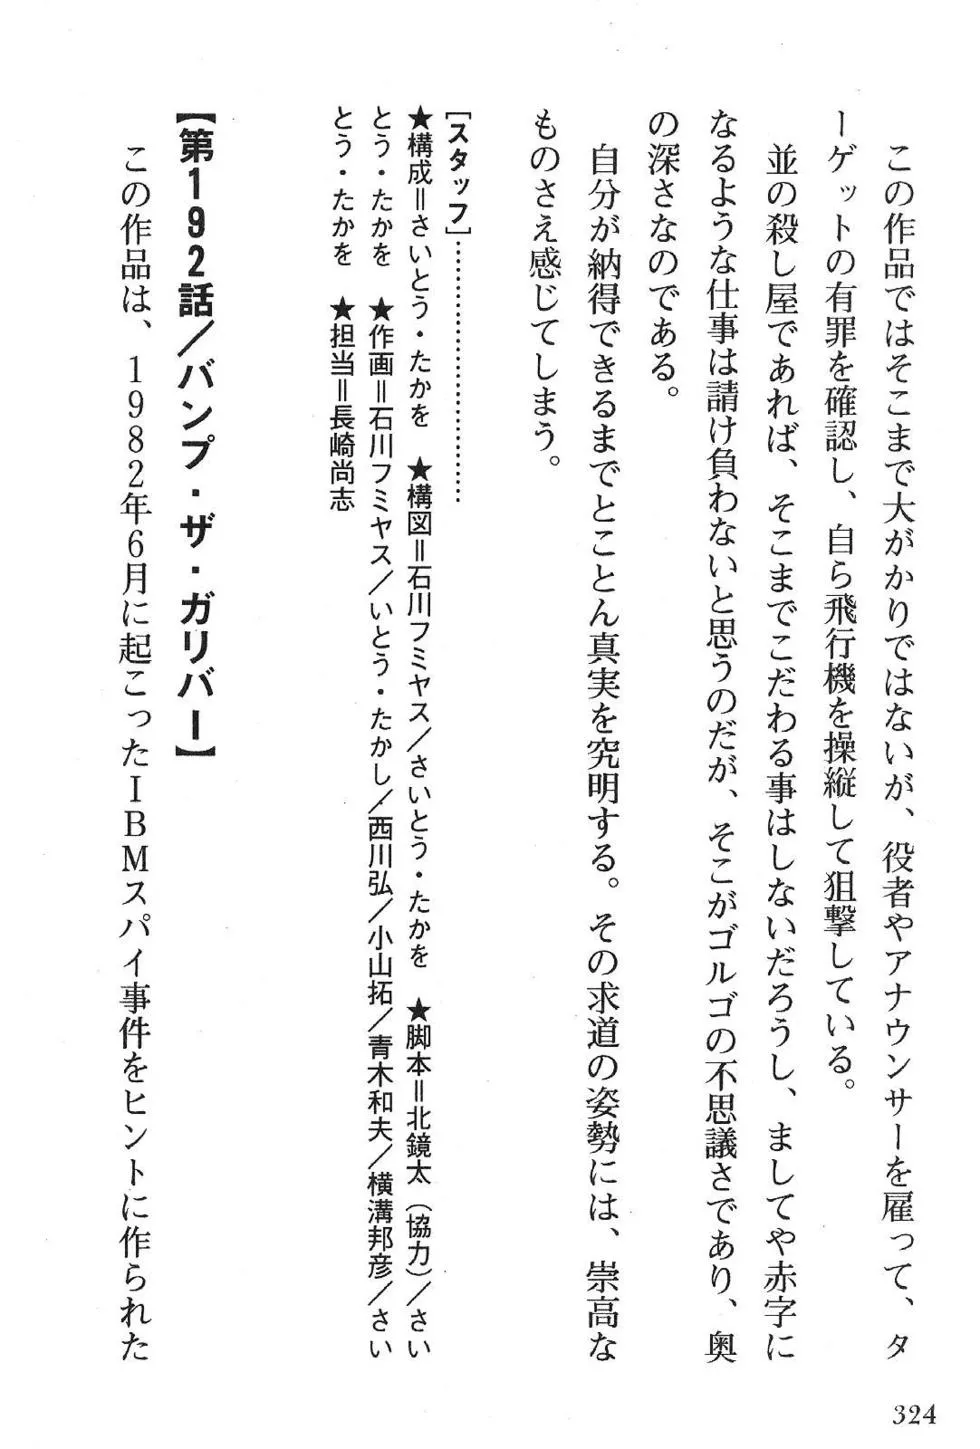 この作品ではそこまで大がかりではないが、役者やアナウンサーを雇って、タ
ーゲットの有罪を確認し、自ら飛行機を操縦して狙撃している。
並の殺し屋であれば、そこまでこだわる事はしないだろうし、ましてや赤字に
なるような仕事は請け負わないと思うのだが、そこがゴルゴの不思議さであり、奥
の深さなのである。
自分が納得できるまでとことん真実を究明する。その求道の姿勢には、崇高な
ものさえ感じてしまう。
[スタッフ]…………………………
★構成＝さいとう・たかを ★構図＝石川フミヤス／さいとう・たかを ★脚本＝北鏡太（協力）／さい
とう・たかを ★作画＝石川フミヤス／いとう・たかし／西川弘／小山拓／青木和夫／横溝邦彦／さい
とう・たかを ★担当＝長崎尚志
【第192話／バンプ・ザ・ガリバー】
この作品は、1982年6月に起こったIBMスパイ事件をヒントに作られた
324